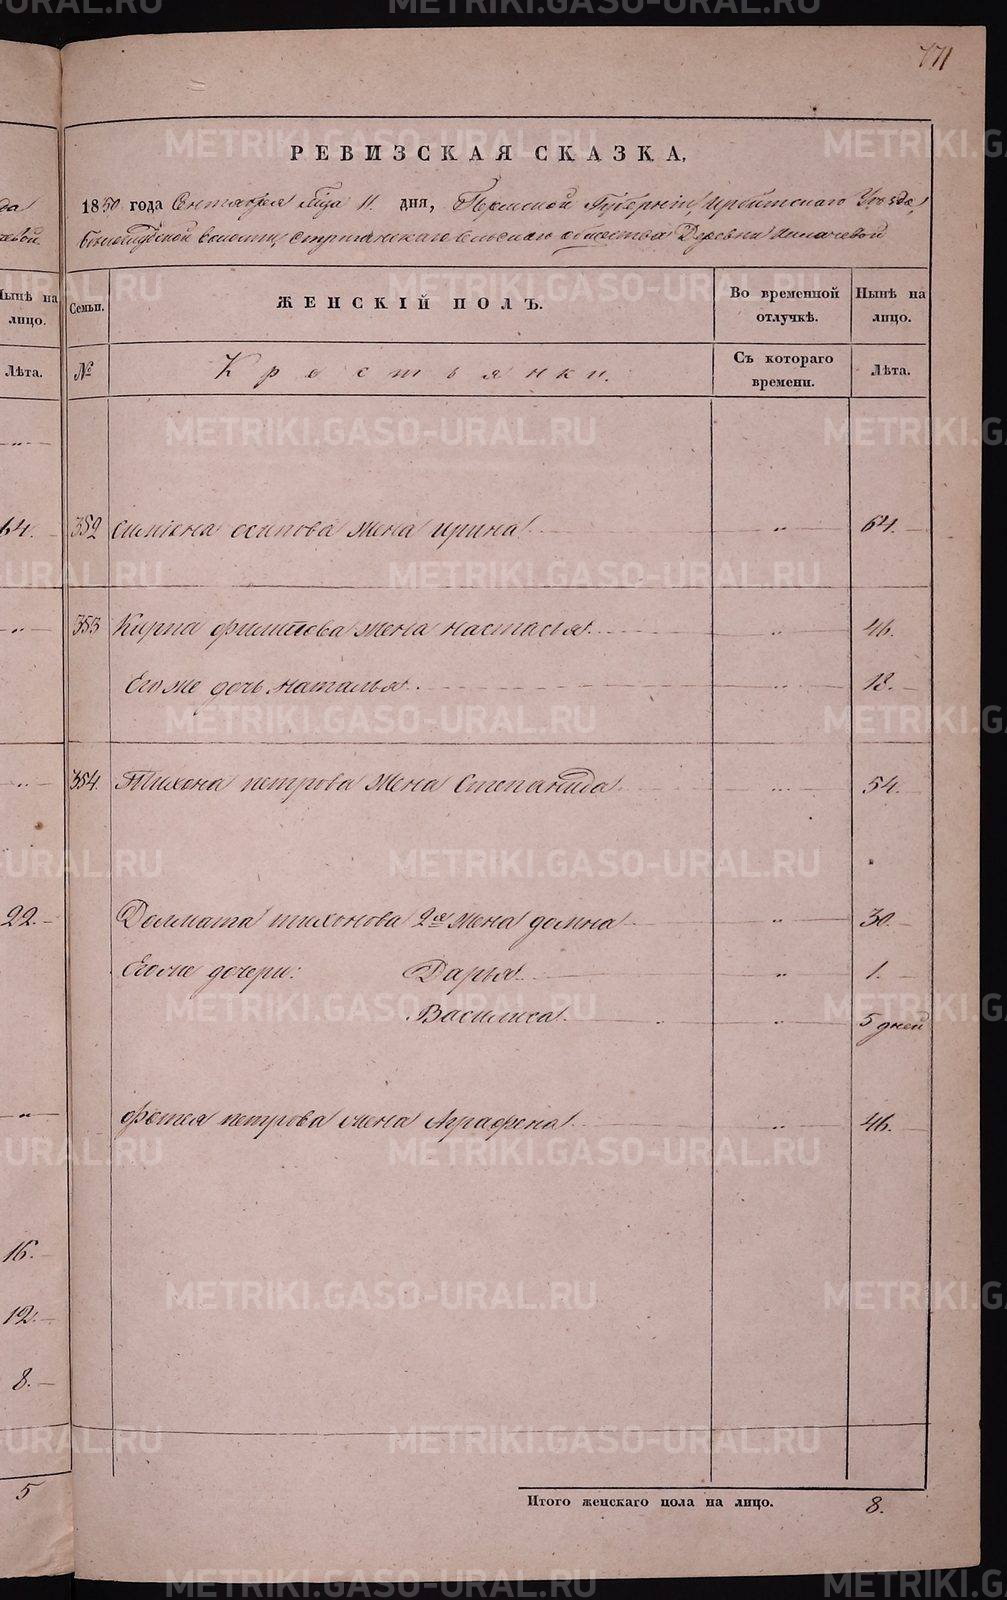 171
РЕВИЗСКАЯ СКАЗКА,
1850 года Сентября м͠ца 11. дня, Пермской Губерніи, Ирбитскаго Уѣзда,
волости, Стриганскаго сельскаго общества Деревни
Семьи.
ЖЕНСКІЙ ПОЛЪ.
Во временной отлучкѣ.
Нынѣ на лицо.
№
Крестьянки.
Съ котораго времени.
Лѣта.
352 Симіона осипова жена ирина „ 64.
353 Кирила филипова жена настасья „ 46.
Его же дочь наталья „ 18.
354. Тихона петрова жена Степанида „ 54.
Далмата тихонова 2я жена домна „ 30.
Его же дочери: Дарья „ 1.
Василиса „ 5 дней
фотея петрова жена Аграфена „ 46.
Итого женскаго пола на лицо. 8.
Нынѣ на лицо.
Лѣта.
64.
22.
16.
12.
8.
5
METRIKI.GASO-URAL.RU